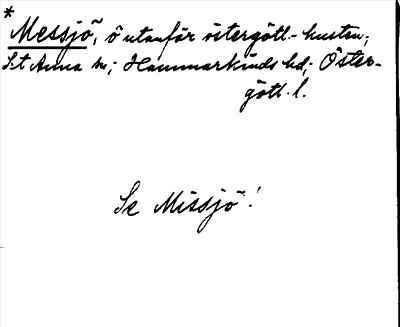 *
Messjö, ö utanför östergötl.-kusten;
S:t Anna sn; Hammarkinds hd; Öster-
götl. l.
Se Missjö!